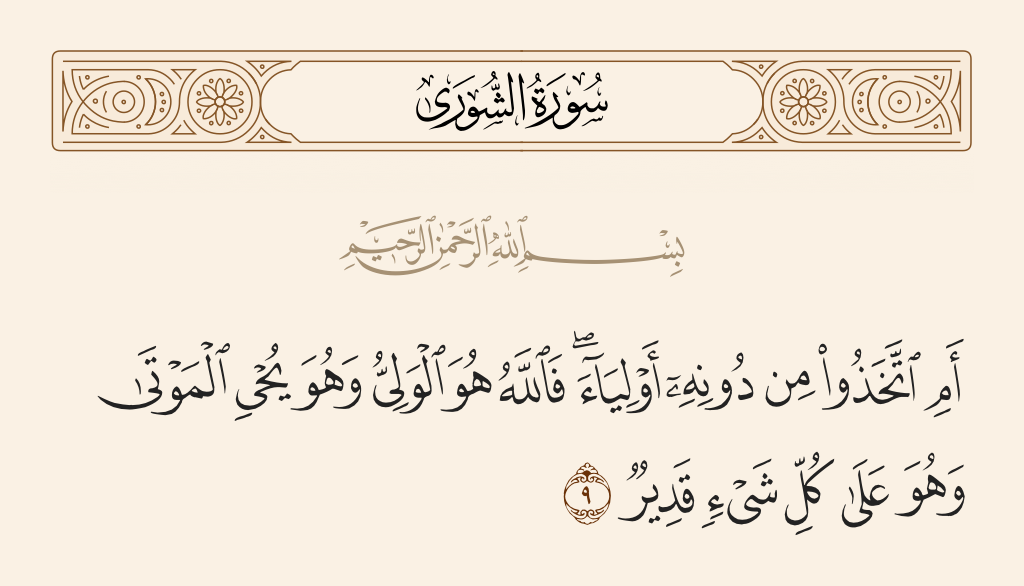 سُورَةُ الشُّورَىٰ
بِسْمِ ٱللَّهِ ٱلرَّحْمَٰنِ ٱلرَّحِيمِ
أَمِ ٱتَّخَذُوا۟ مِن دُونِهِۦٓ أَوْلِيَآءَ ۖ فَٱللَّهُ هُوَ ٱلْوَلِىُّ وَهُوَ يُحْىِ ٱلْمَوْتَىٰ
وَهُوَ عَلَىٰ كُلِّ شَىْءٍ قَدِيرٌ ٩